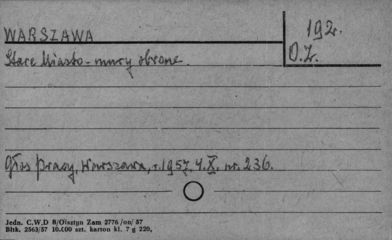 WARSZAWA
192.
O.Z.
Stare Miasto - mury obronne.
Głos Pracy, Warszawa, r. 1957. 4.X. nr. 236.
Jedn. C.W.D B/Olsztyn Zam 2776/on/57
Bhk. 2563/57 10.000 szt. karton kl. 7 g 220,